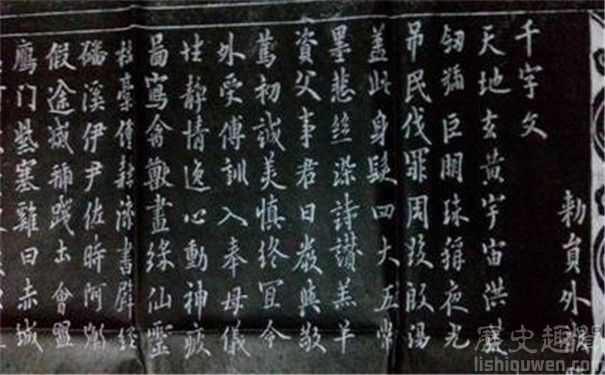 勅員外散
千字文
天地玄黃宇宙洪荒
劒號巨闕珠稱夜光
吊民伐罪周發殷湯
蓋此身髮四大五常
墨悲絲染詩讃羔羊
資父事君曰嚴與敬
篤初誠美慎終宜令
外受傅訓入奉母儀
性靜情逸心動神疲
啚寫禽獸畫綵仙靈
杜稾鍾隸漆書壁經
磻溪伊尹佐時阿衡
假途滅虢踐土會盟
鴈門紫塞雞田赤城
歷史趣聞
lishiquwen.com